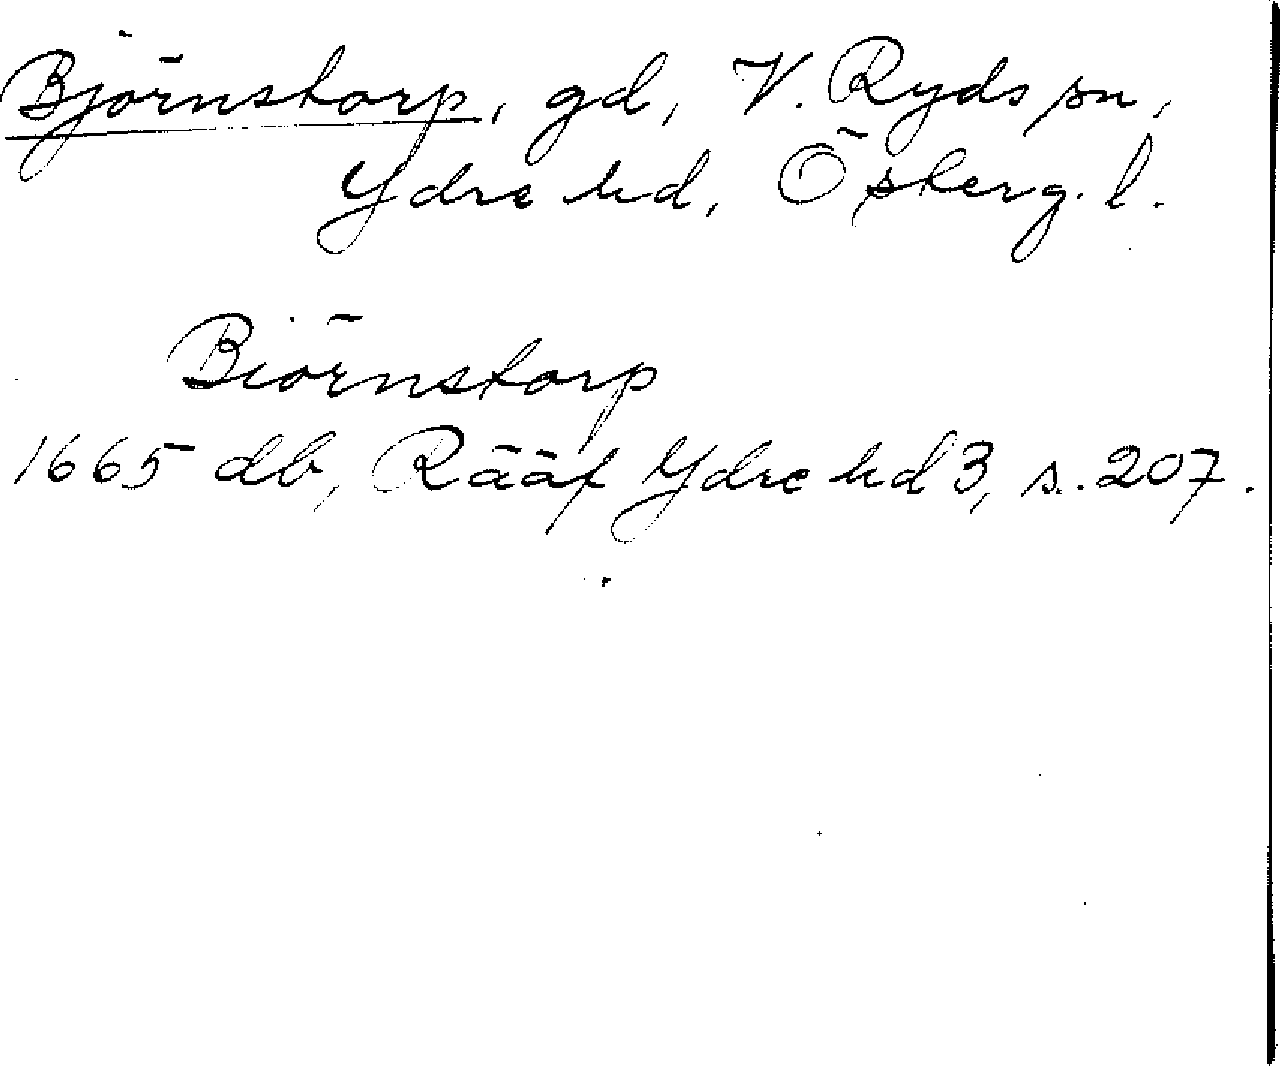 Björnstorp, gd, V. Ryds sn,
Ydre hd, Österg. l.
Biörnstorp
1665 db, Rääf Ydre hd 3, s. 207.